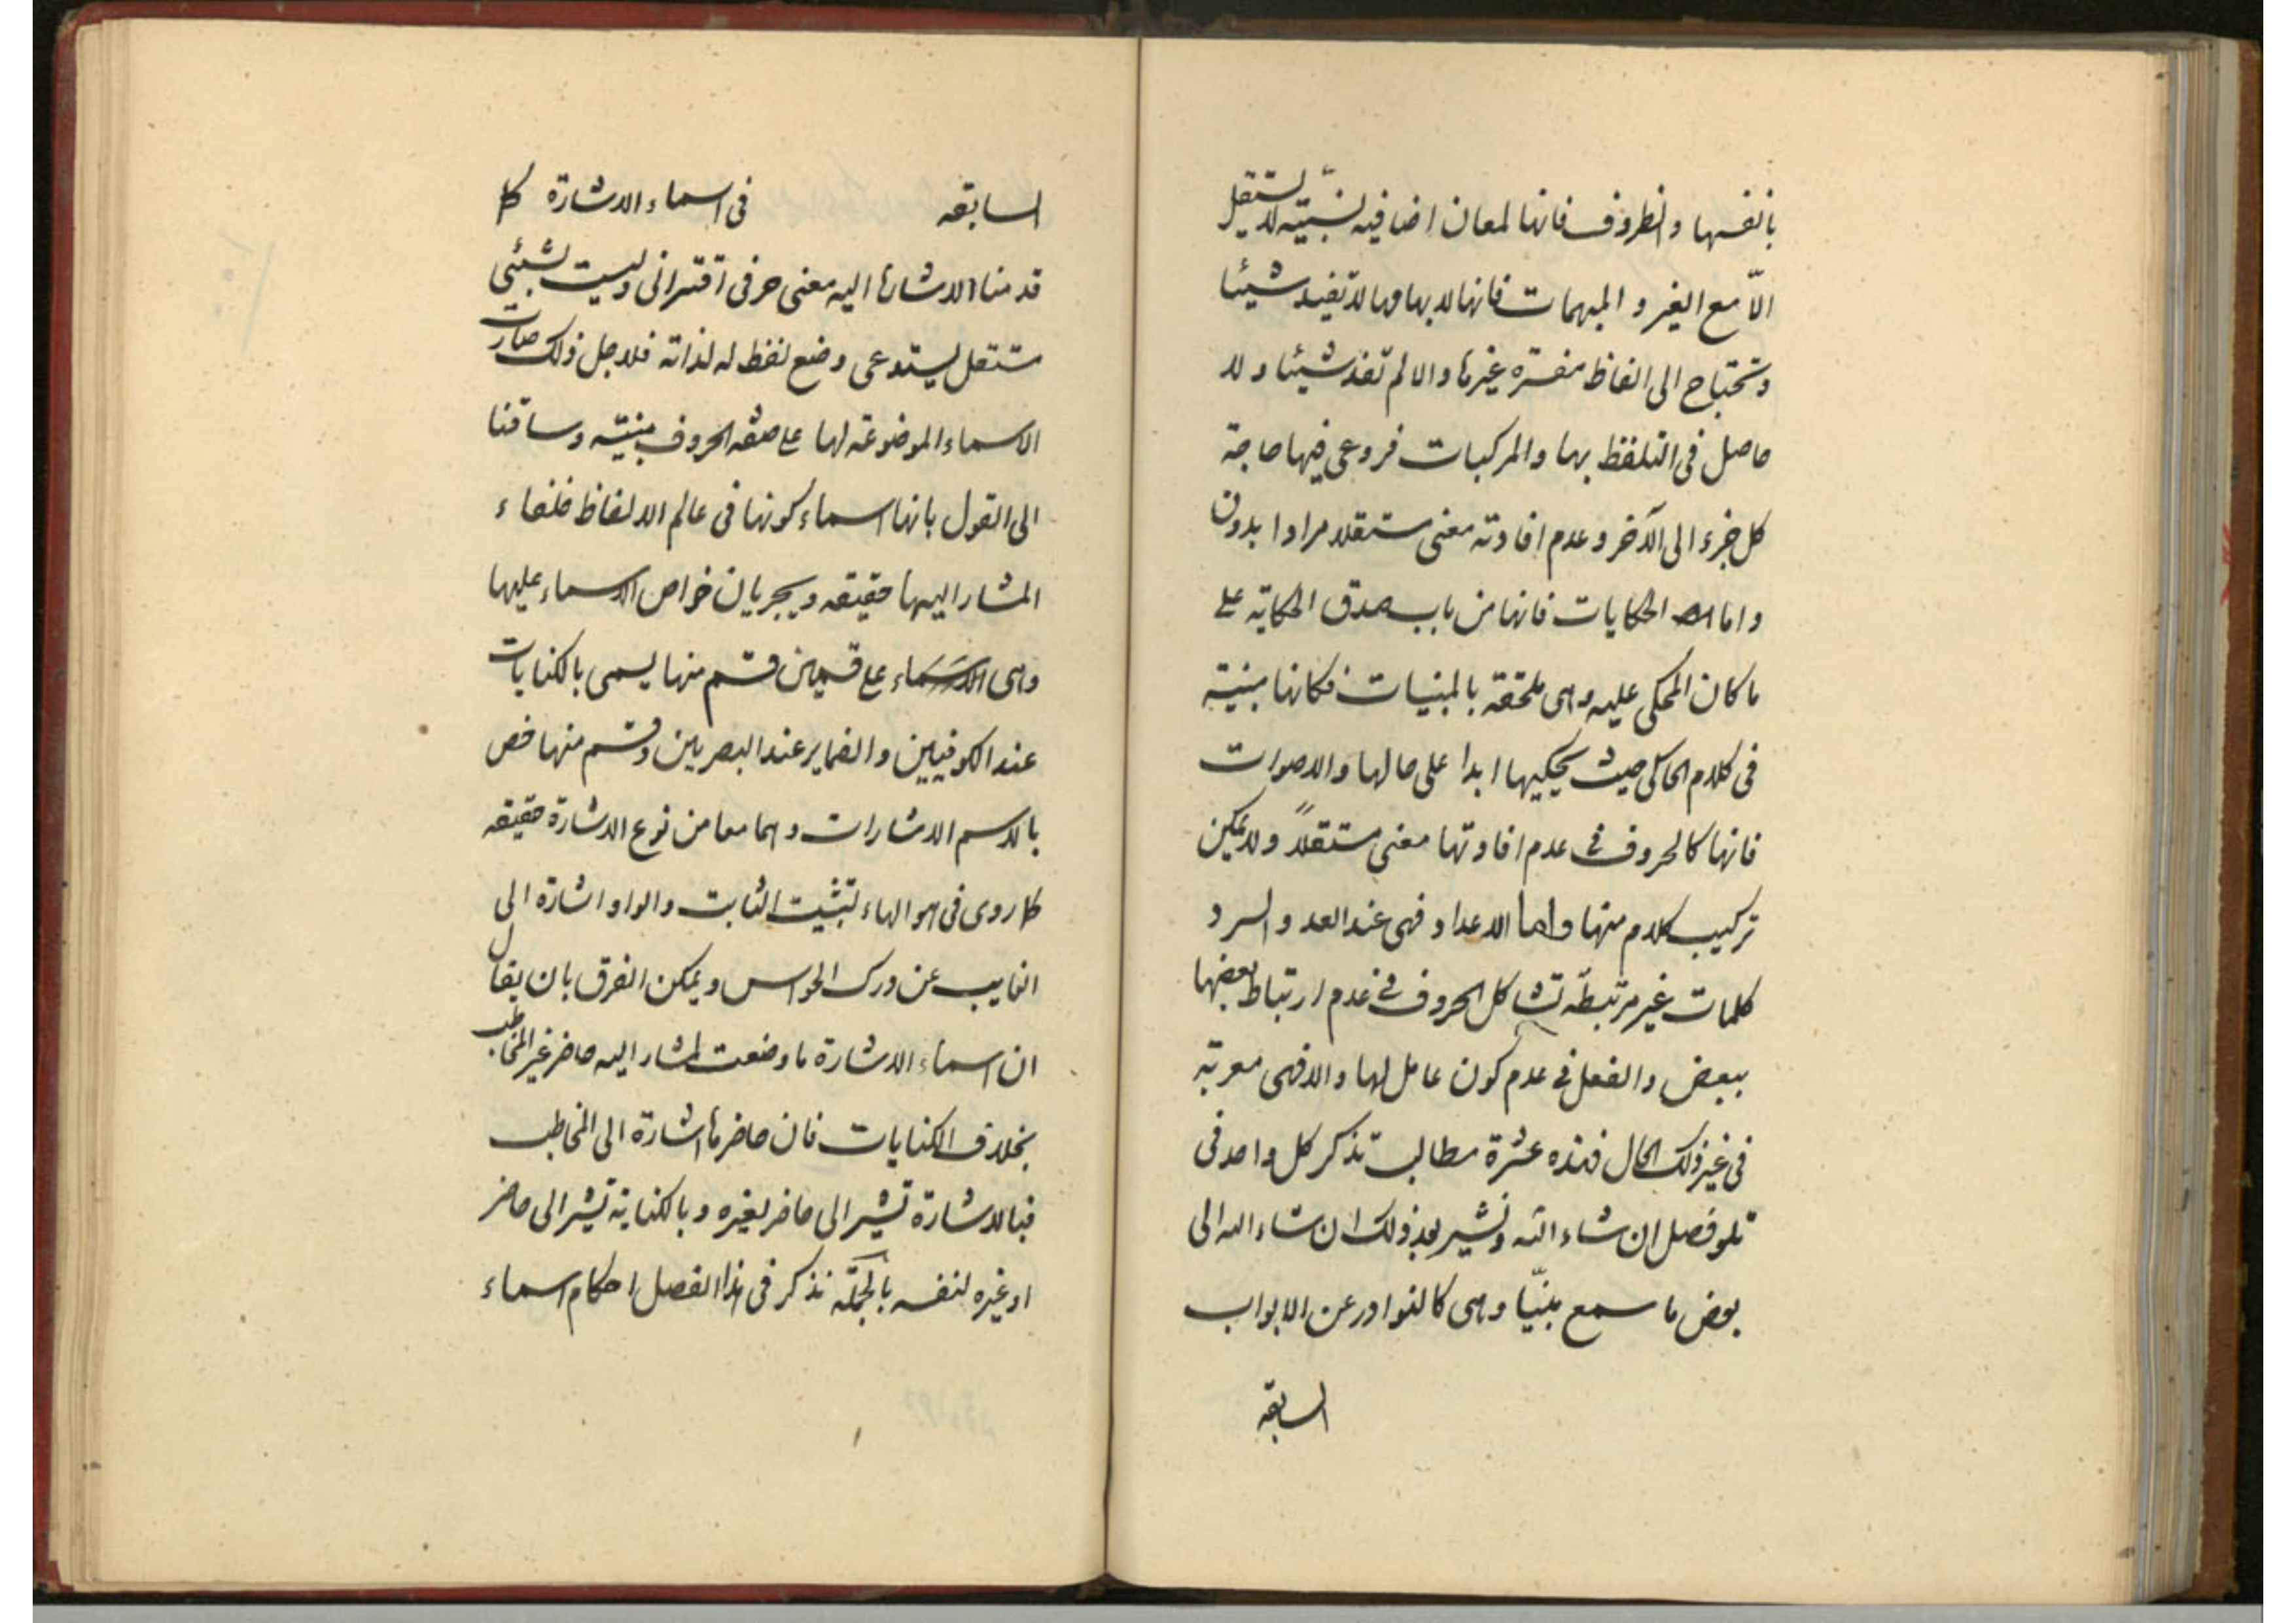 بانفسها و الظروف فانها لمعان اضافيه نسبيّه لا يستقل
الّا مع الغير و المبهمات فانها لابهامها لا تفيد شيئا
و تحتاج الى الفاظ مفسّره غيرها و الا لم تفد شيئا و لا
حاصل فى التلفظ بها و المركبات فروعى فيها حاجة
كل جزء الى الآخر و عدم افادته معنى مستقلا مرادا بدون
و اما الحكايات فانها من باب صدق الحكاية على
ما كان المحكى عليه و هى ملحقة بالمبنيات فكانها مبنية
فى كلام الحاكى حيث يحكيها ابدا على حالها و الاصوات
فانها كالحروف فى عدم افادتها معنى مستقلاً و لا يمكن
تركيب كلام منها و اما الاعداد فهى عند العد و السرد
كلمات غير مرتبطة تشاكل الحروف فى عدم ارتباط بعضها
ببعض و الفعل فى عدم كون عامل لها و الا فهى معربة
فى غير ذلك الحال فهذه عشرة مطالب نذكر كل واحد فى
تلو فصل ان شاء الله و نشير بعد ذلك ان شاء الله الى
بعض ما سمع مبنيّا و هى كالنوادر عن الابواب
السابقه
السابقه فى اسماء الاشارة كما
قدمنا الاشارة اليه معنى حرفى اقترانى و ليست بشيئ
مستقل يستدعى وضع لفظ له لذاته فلاجل ذلك صارت
الاسماء الموضوعة لها على صفة الحروف مبنيّه و ساقنا
الى القول بانها اسماء كونها فى عالم الالفاظ خلفاء
المشار اليها حقيقه و يجريان خواص الاسماء عليها
و هى الاسماء على قسمين قسم منها يسمى بالكنايات
عند الكوفيين و الضماير عند البصريين و قسم منها خص
بالاسم الاشارات و هما معا من نوع الاشارة حقيقه
كما روى فى هو الهاء تثبيت الثابت و الواو اشارة الى
الغايب عن درك الحواس و يمكن الفرق بان يقال
ان اسماء الاشارة ما وضعت لمشار اليه حاضر غير المخاطب
بخلاف الكنايات فان حاضرها اشارة الى المخاطب
فبالاشارة تشير الى حاضر لغيره و بالكناية تشير الى حاضر
او غيره لنفسه بالجملة نذكر فى هذا الفصل احكام اسماء